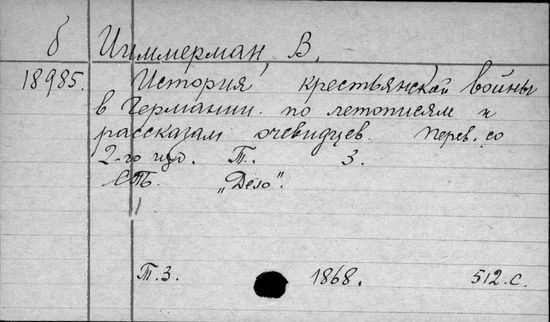 б Циммерман, В.
18985. История крестьянской войны
в Германии по летописям и
рассказам очевидцев. Перев. со
2-го изд. Т. 3.
СПБ. „Дело".
Т. 3. 1868. 512 с.